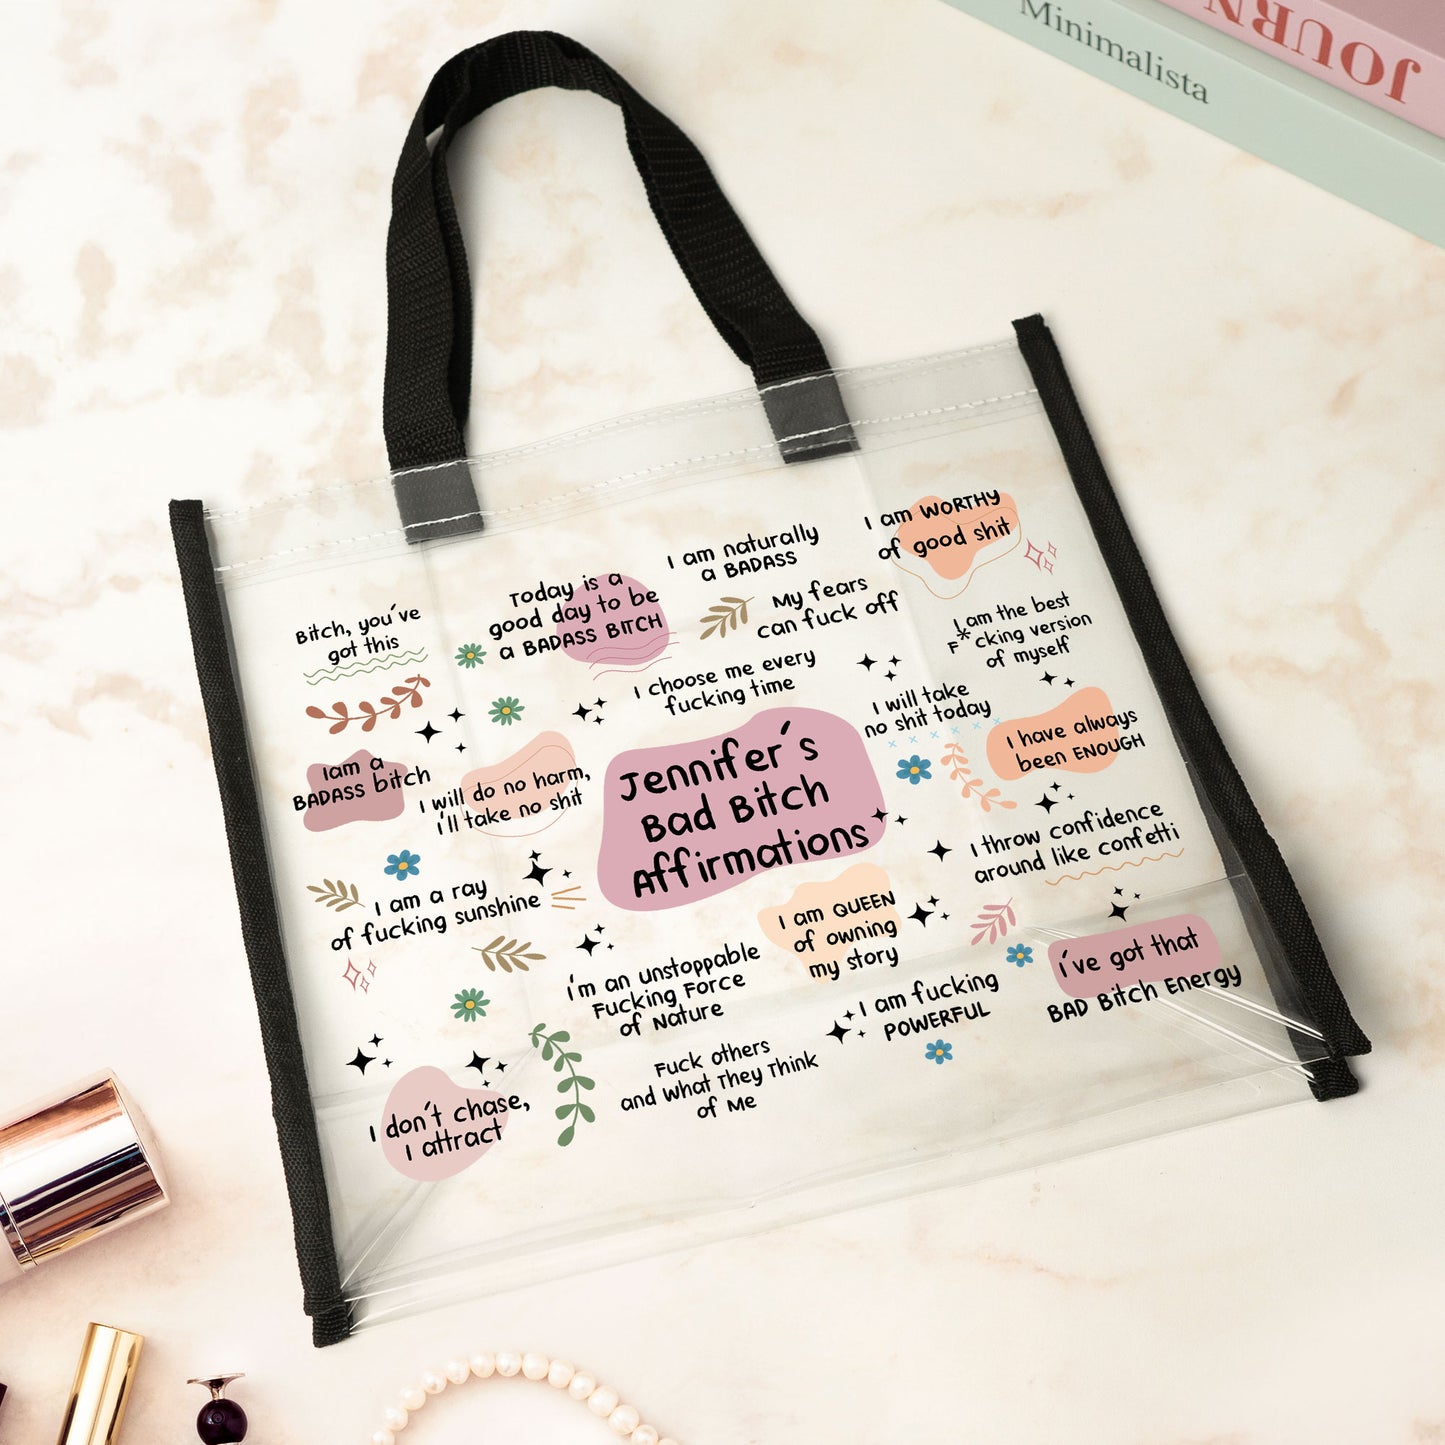 Minimalista
JOURN
I am WORTHY
of good shit
I am naturally
a BADASS
Today is a
good day to be
a BADASS BITCH
My fears
can fuck off
Bitch, you've
got this
I am the best
F*cking version
of myself
I choose me every
fucking time
I will take
no shit today
I have always
been ENOUGH
Jennifer's
Bad Bitch
Affirmations
I am a
BADASS bitch
I will do no harm,
i'll take no shit
I throw confidence
around like confetti
I am a ray
of fucking sunshine
I am QUEEN
of owning
my story
i've got that
BAD Bitch Energy
i'm an unstoppable
Fucking Force
of Nature
I am fucking
POWERFUL
Fuck others
and What They Think
of Me
I don't chase,
I attract